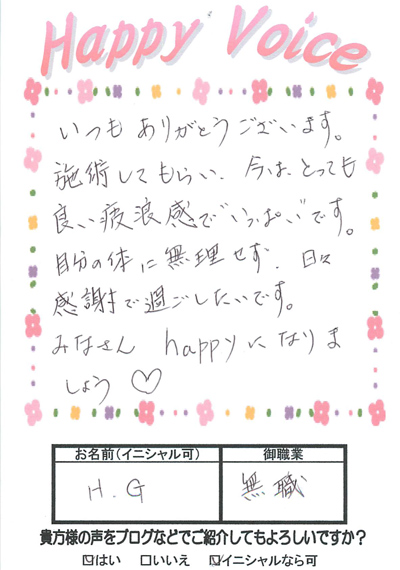 Happy Voice
いつもありがとうございます。
施術してもらい、今は、とっても
良い疲浪感で"いっぱい"です。
自分の体に無理せず、日々
感謝で過ごしたいです。
みなさん happyになりま
しょう♡
お名前(イニシャル可) 御職業
H.G 無職
貴方様の声をブログなどでご紹介してもよろしいですか?
☑はい □いいえ ☑イニシャルなら可